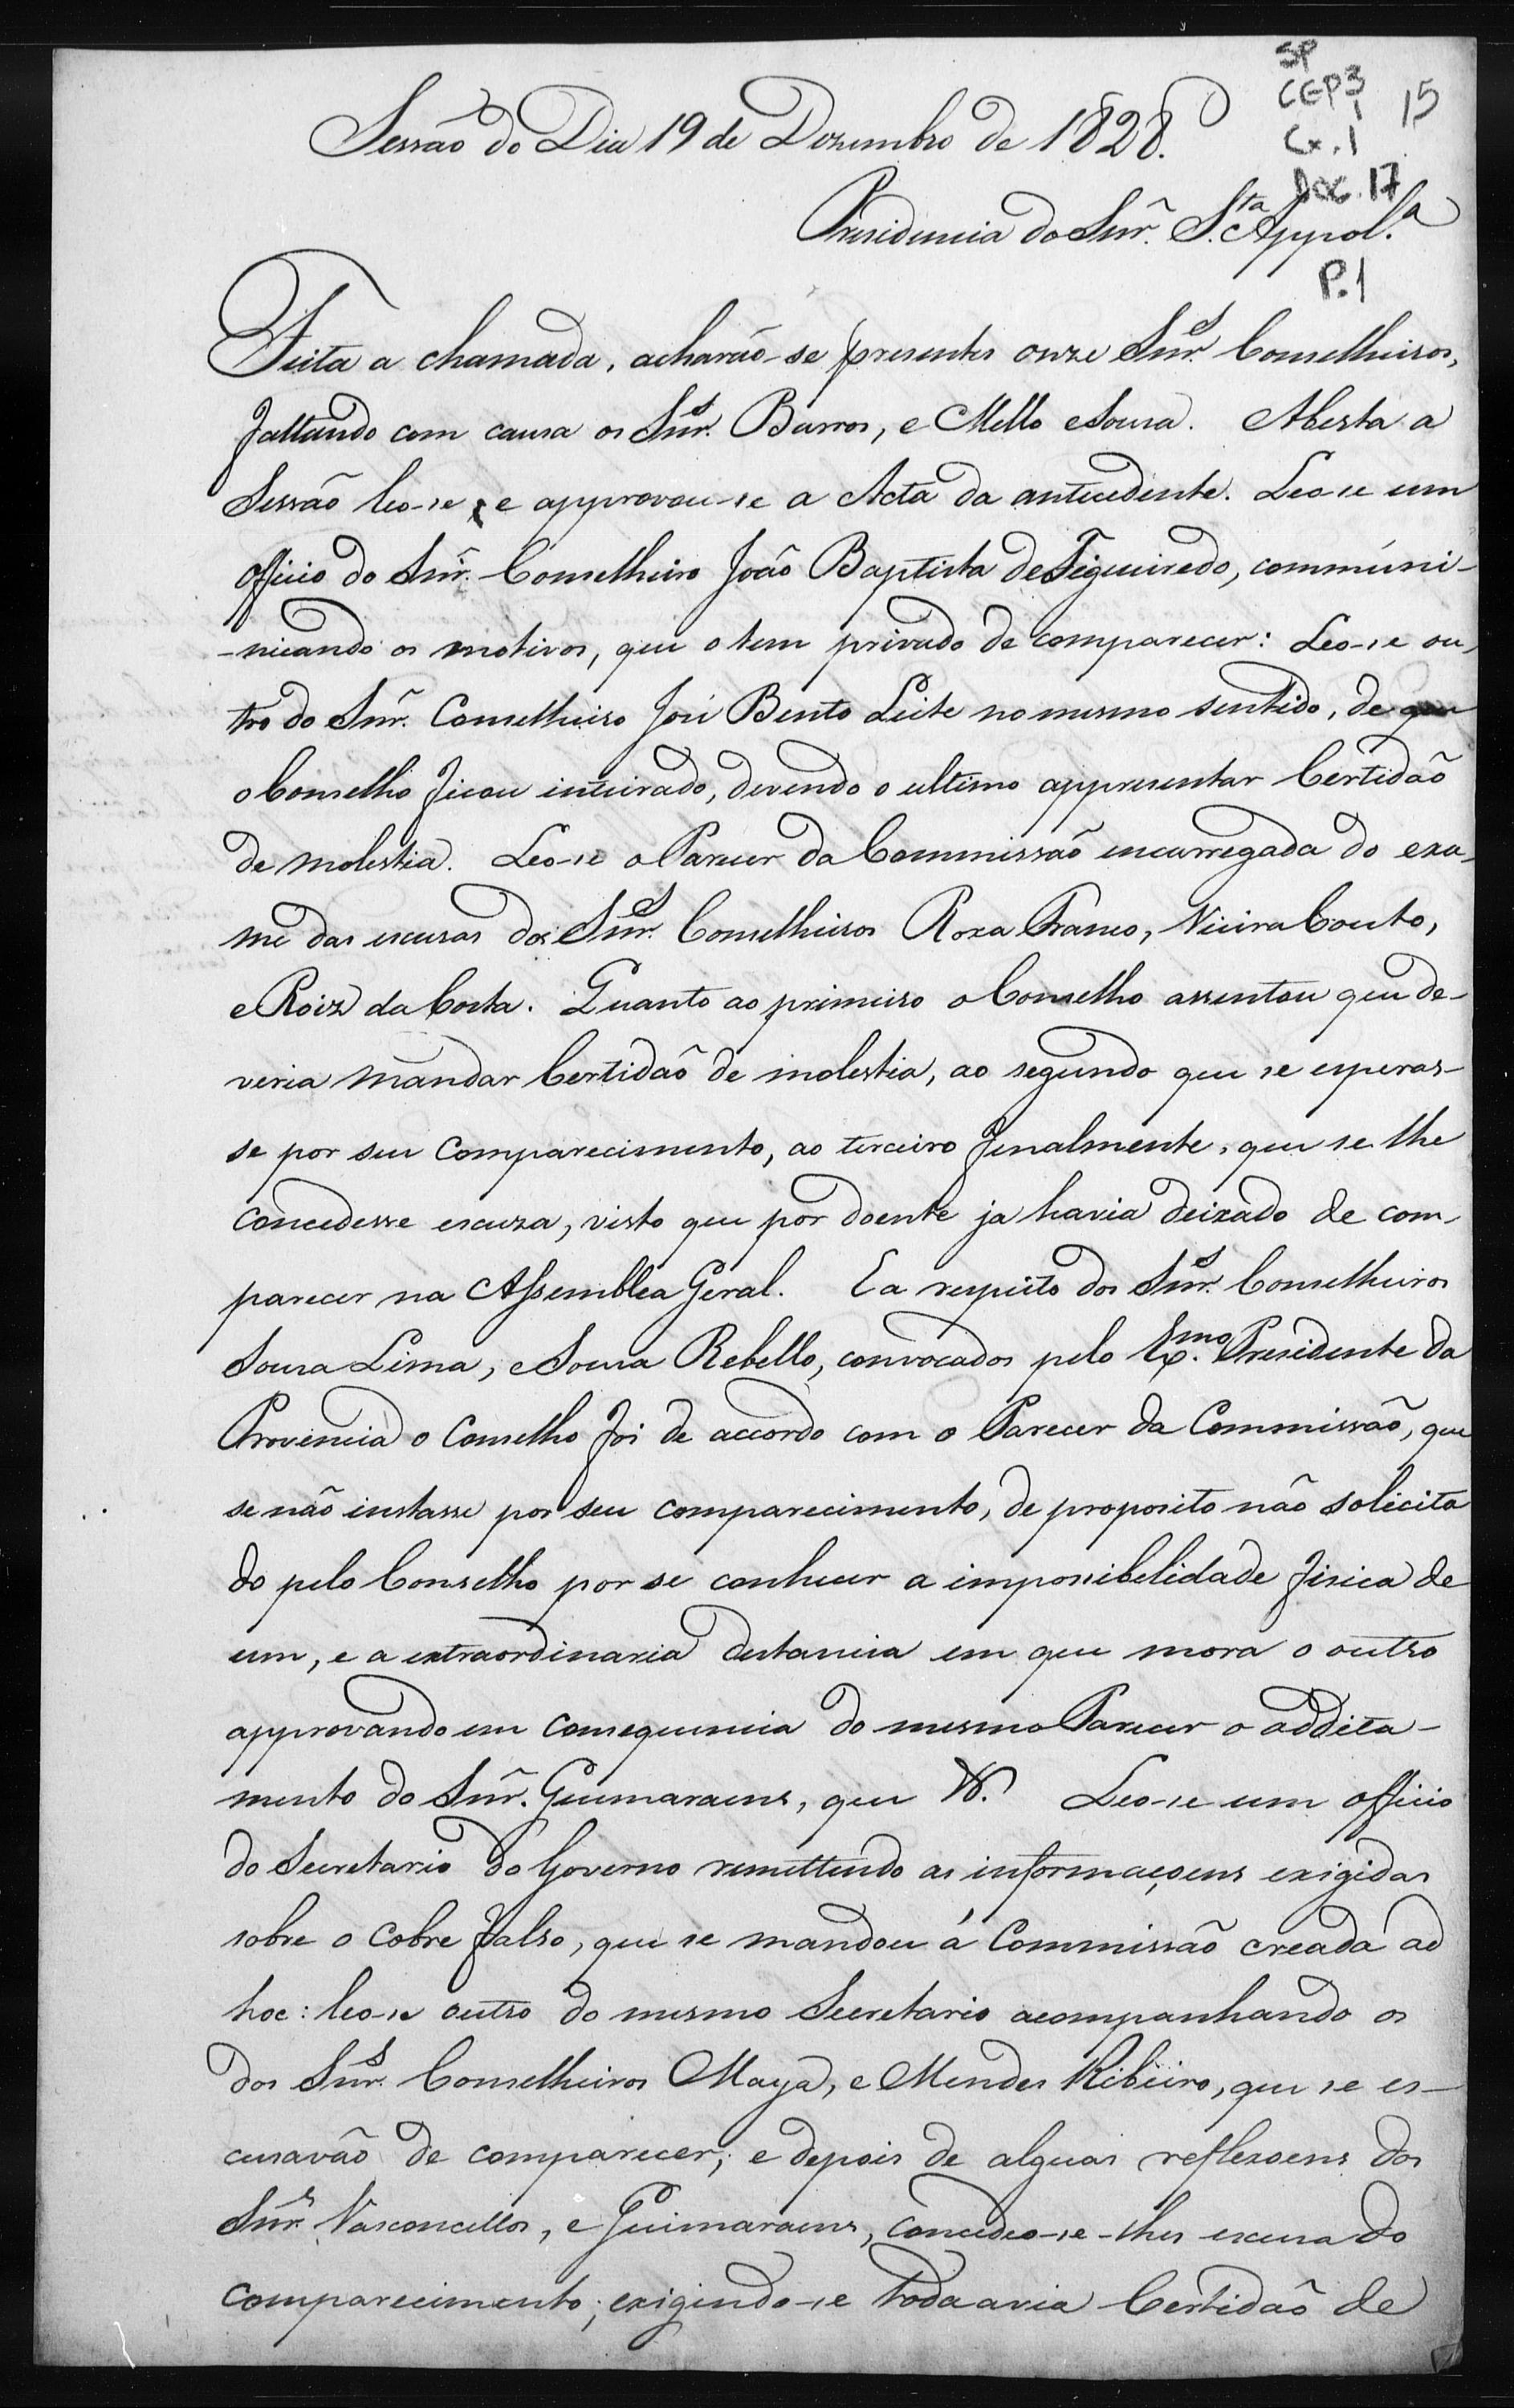 SP
CGP3
1
Cx.1
15
Doc. 17
Sessão do Dia 19 de Dezembro de 1828.
Presidencia do Snr̃. S.ta Appol.a
P.1
Feita a chamada, acharão-se presentes onze Snr.s Conselheiros,
faltando com causa os Snr.s Barros, e Mello e Sousa. Aberta a
Sessão leo-se, e approvou-se a Acta da antecedente. Leo-se um
officio do Snr̃. Conselheiro João Baptista de Figueiredo, commúni-
-nicando os motivos, que o tem privado de comparecer: Leo-se ou-
tro do Snr̃. Conselheiro José Bento Leite no mesmo sentido, de que
o Conselho ficou inteirado, devendo o ultimo appresentar Certidão
de molestia. Leo-se o Parecer da Commissão encarregada do exa-
me das escusas dos Snr.s Conselheiros Roza Franco, Vieira Couto,
e Roiz da Costa. Quanto ao primeiro o Conselho assentou que de-
veria mandar Certidaõ de molestia, ao segundo que se esperas-
se por seu comparecimento, ao terceiro finalmente, que se lhe
concedesse escuza, visto que por doente ja havia deixado de com-
parecer na Assemblea Geral. E a respeito dos Snr.s Conselheiros
Sousa Lima, e Sousa Rebello, convocados pelo Ex.mo Presidente da
Provincia o Conselho foi de accordo com o Parecer da Commissão, que
se não instasse por seu comparecimento, de proposito não solicita
do pelo Conselho por se conhecer a impossibelidade fisica de
um, e a extraordinaria destancia em que mora o outro
approvando em consequencia do mesmo Parecer o addita-
mento do Snr̃. Guimaraens, que W. Leo-se um officio
do Secretario do Governo remettendo as informaçoens exigidas
sobre o cobre falso, que se mandou á Commissão creada ad
hoc: leo-se outro do mesmo Secretario acompanhando os
dos Snr.s Conselheiros Maya, e Mendes Ribeiro, que se es-
cusavão de comparecer; e depois de alguas reflexoens dos
Snr.s Vasconcellos, e Guimaraens, concedeo-se-lhes escusa do
comparecimento; exigindo-se todaavia Certidaõ de